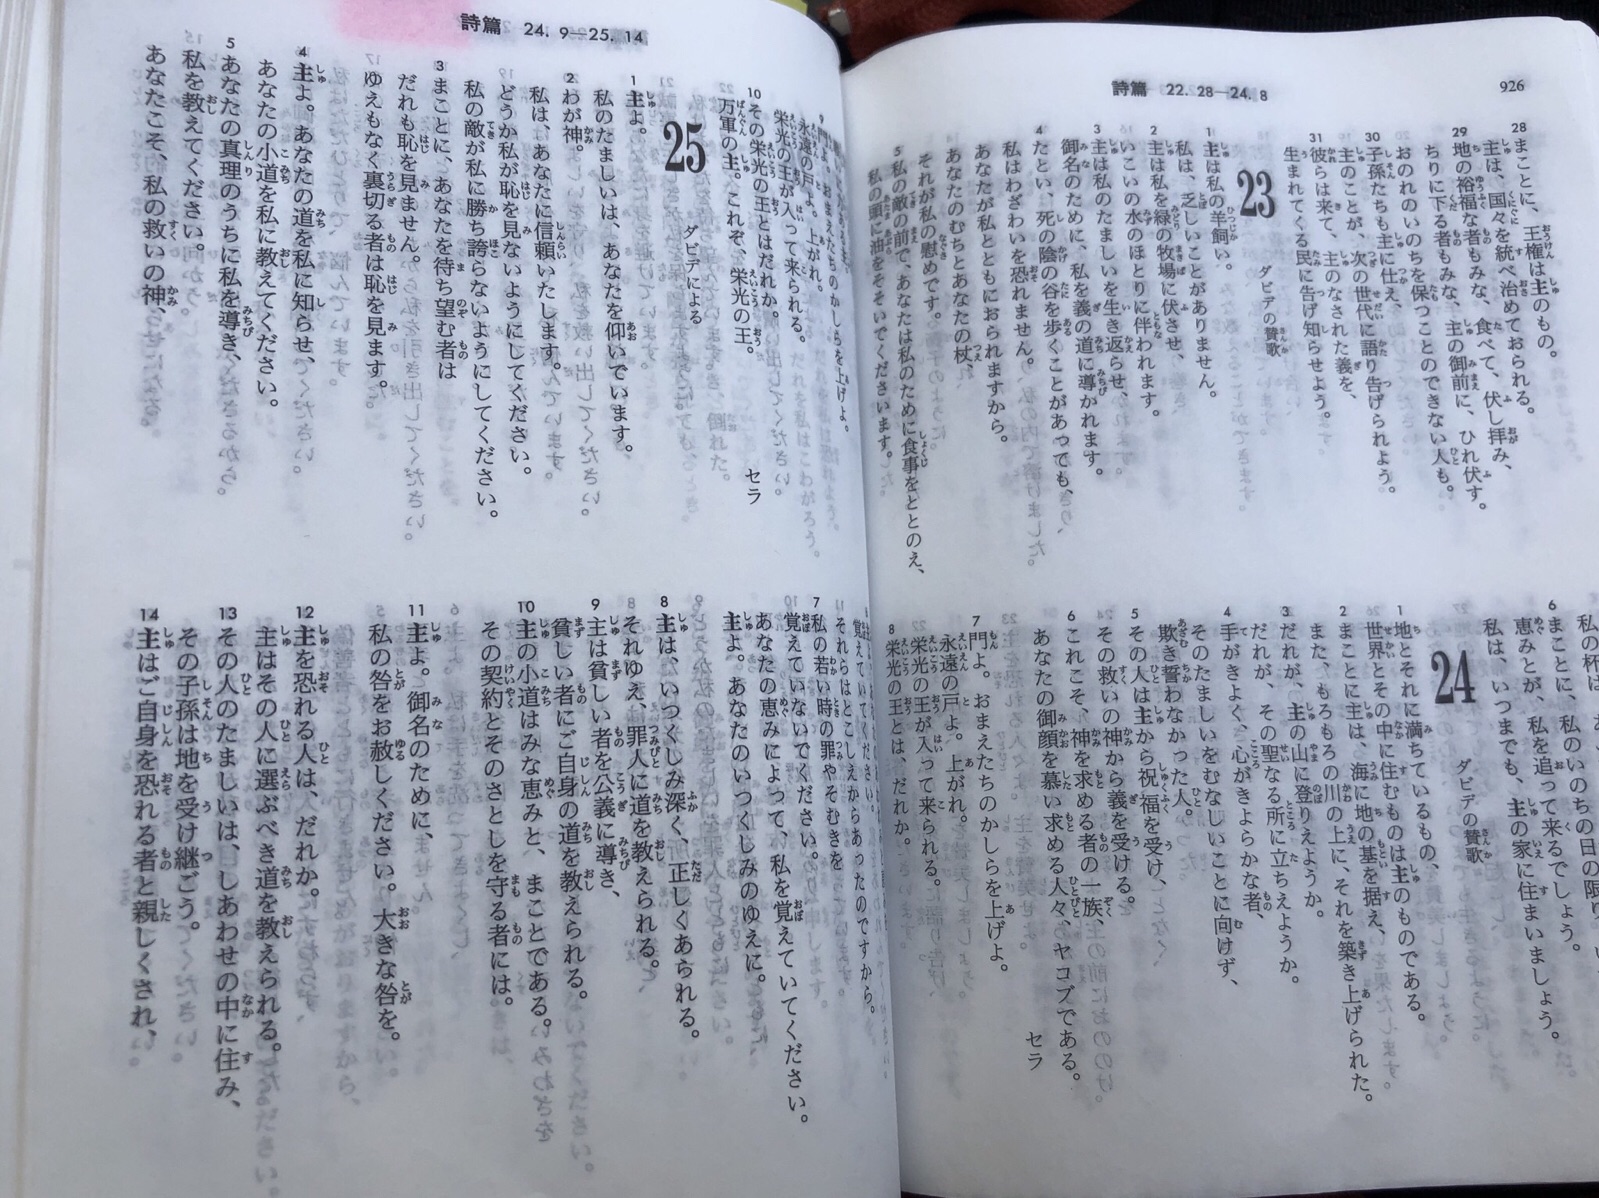 926
詩篇 22. 28—24. 8
28 まことに、王権は主のもの。
主は、国々を統べ治めておられる。
29 地の裕福な者もみな、食べて、伏し拝み、
ちりに下る者もみな、主の御前に、ひれ伏す。
おのれのいのちを保つことのできない人も。
30 子孫たちも主に仕え、
主のことが、次の世代に語り告げられよう。
31 彼らは来て、主のなされた義を、
生まれてくる民に告げ知らせよう。
23
ダビデの賛歌
1 主は私の羊飼い。
私は、乏しいことがありません。
2 主は私を緑の牧場に伏させ、
いこいの水のほとりに伴われます。
3 主は私のたましいを生き返らせ、
御名のために、私を義の道に導かれます。
4 たとい、死の陰の谷を歩くことがあっても、
私はわざわいを恐れません。
あなたが私とともにおられますから。
あなたのむちとあなたの杖、
それが私の慰めです。
5 私の敵の前で、あなたは私のために食事をととのえ、
私の頭に油をそそいでくださいます。
6 まことに、私のいのちの日の限り、
恵みとが、私を追って来るでしょう。
私は、いつまでも、主の家に住まいましょう。
24
ダビデの賛歌
1 地とそれに満ちているもの、
世界とその中に住むものは主のものである。
2 まことに主は、海に地の基を据え、
また、もろもろの川の上に、それを築き上げられた。
3 だれが、主の山に登りえようか。
だれが、その聖なる所に立ちえようか。
4 手がきよく、心がきよらかな者、
そのたましいをむなしいことに向けず、
欺き誓わなかった人。
5 その人は主から祝福を受け、
その救いの神から義を受ける。
6 これこそ、神を求める者の一族、
あなたの御顔を慕い求める人々、ヤコブである。
セラ
7 門よ。おまえたちのかしらを上げよ。
永遠の戸よ。上がれ。
栄光の王が入って来られる。
8 栄光の王とは、だれか。
詩篇 24. 9—25. 14
9 門よ。おまえたちのかしらを上げよ。
永遠の戸よ。上がれ。
栄光の王が入って来られる。
10 その栄光の王とはだれか。
万軍の主。これぞ、栄光の王。
セラ
25
ダビデによる
1 主よ。
私のたましいは、あなたを仰いでいます。
2 わが神。
私は、あなたに信頼いたします。
どうか私が恥を見ないようにしてください。
私の敵が私に勝ち誇らないようにしてください。
3 まことに、あなたを待ち望む者は
だれも恥を見ません。
ゆえもなく裏切る者は恥を見ます。
4 主よ。あなたの道を私に知らせ、
あなたの小道を私に教えてください。
5 あなたの真理のうちに私を導き、
私を教えてください。
あなたこそ、私の救いの神、
覚えていてください。
それらはとこしえからあったのですから。
7 私の若い時の罪やそむきを
覚えていないでください。
あなたの恵みによって、私を覚えていてください。
主よ。あなたのいつくしみのゆえに。
8 主は、いつくしみ深く、正しくあられる。
それゆえ、罪人に道を教えられる。
9 主は貧しい者を公義に導き、
貧しい者にご自身の道を教えられる。
10 主の小道はみな恵みと、まことである。
その契約とそのさとしを守る者には。
11 主よ。御名のために、
私の咎をお赦しください。大きな咎を。
12 主を恐れる人は、だれか。
主はその人に選ぶべき道を教えられる。
13 その人のたましいは、しあわせの中に住み、
その子孫は地を受け継ごう。
14 主はご自身を恐れる者と親しくされ、